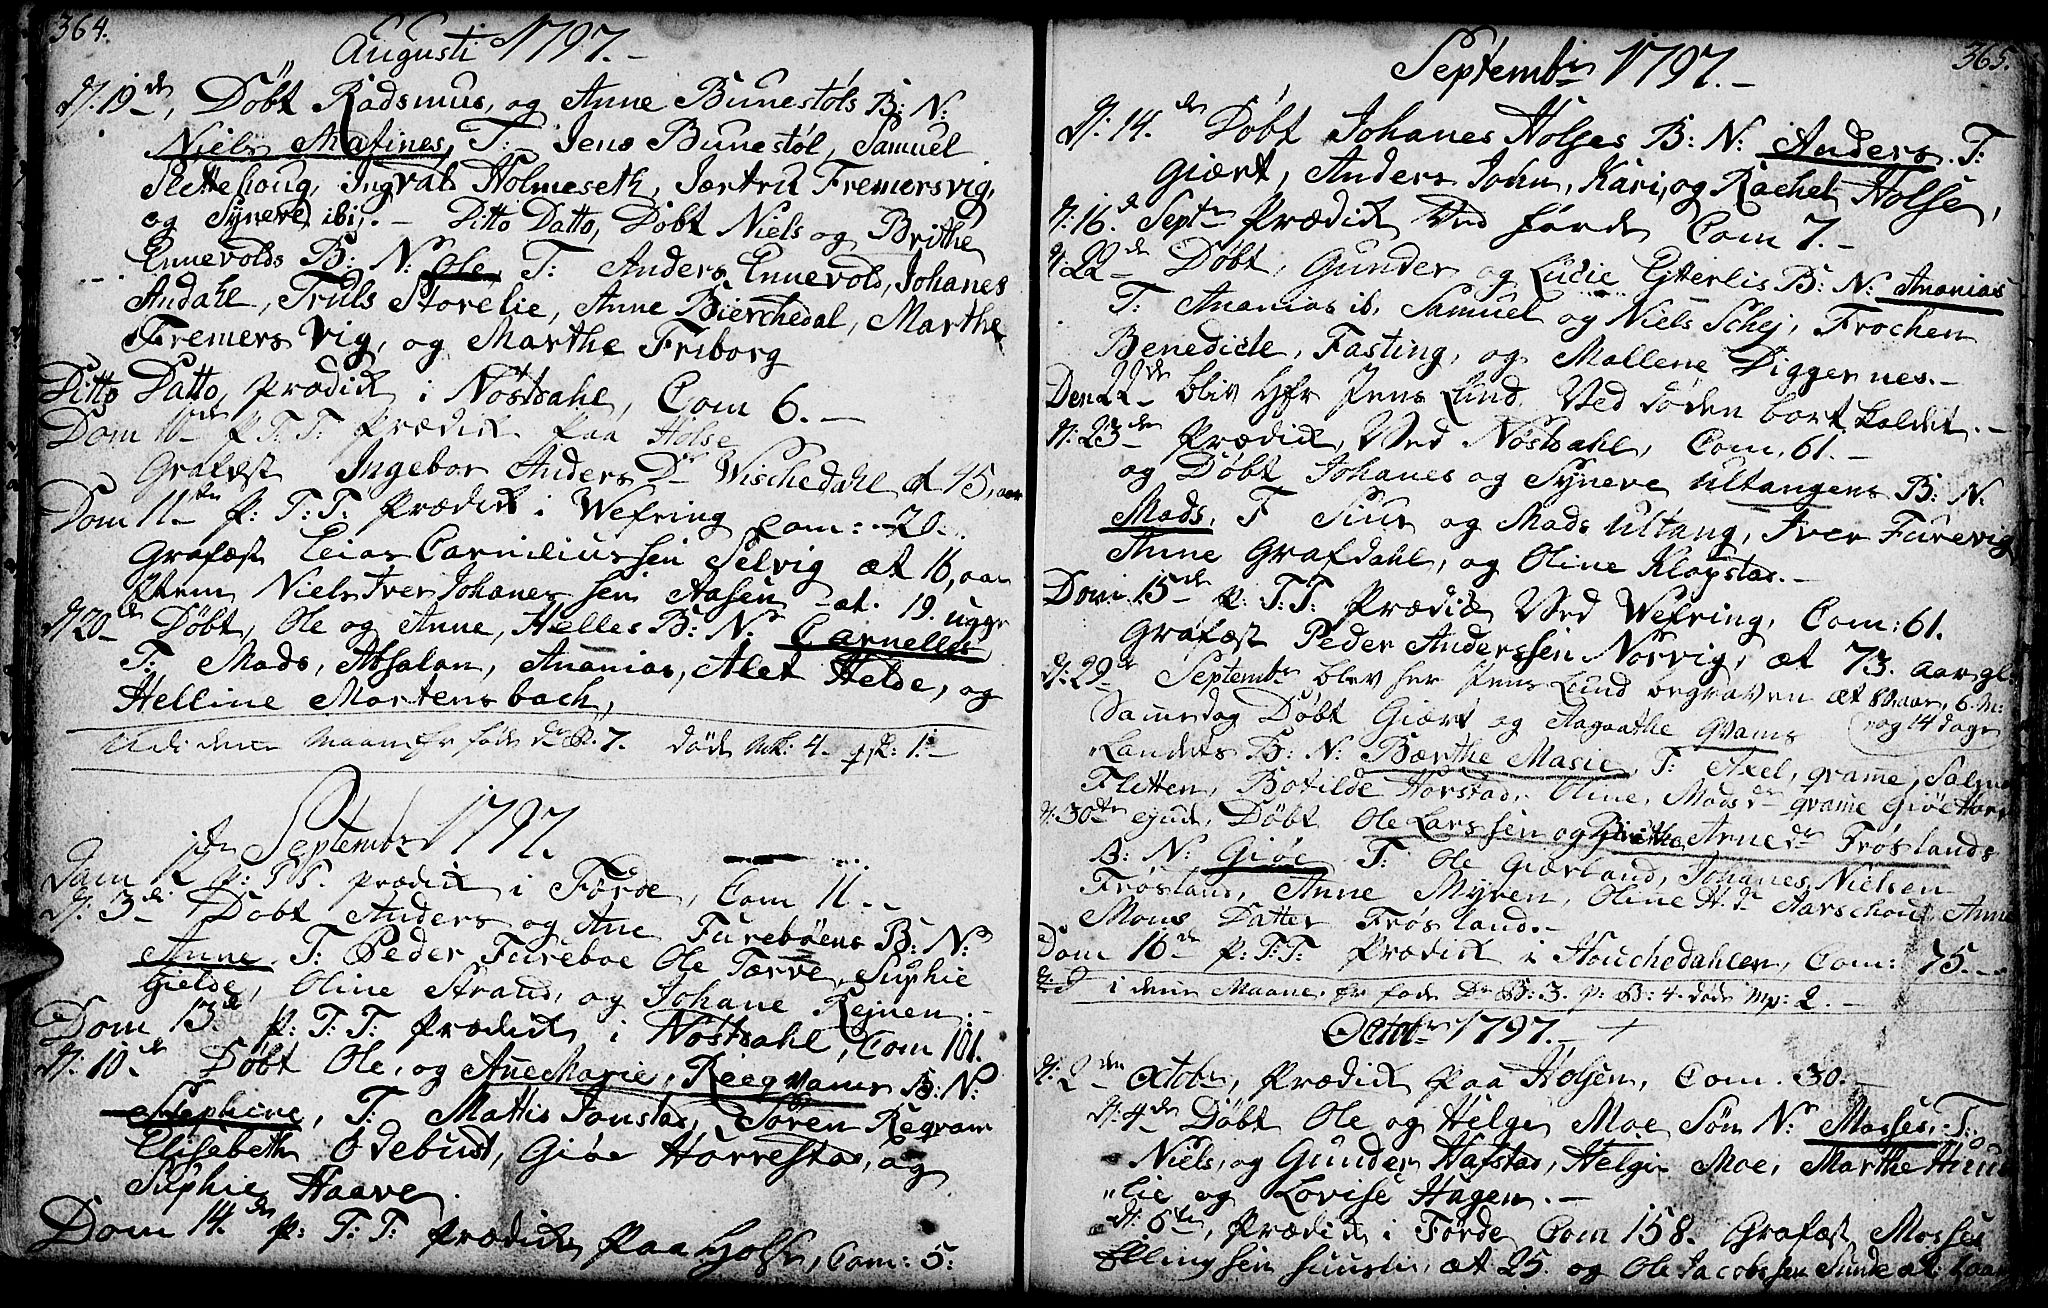 364.
Augusti 1797.-
d. 19de, Døbt Radsmus, og Anne Bunestøls B: N:
Niels Matines, T: Jens Bunestøl, Samuel
Slettehoug, Ingval Holmeseth, Jørtru Fremersvig,
og Syneve ibi; - Ditto Datto, Døbt Niels og Brithe
Ennevolds B: N: Ole, T: Anders Ennevold, Johanes
Andahl, Truls Storelie, Anne Bierchedal, Marthe
Fremers Vig, og Marthe Friborg
Ditto Datto, Prædik i Nøstdahl, Com 6. -
Dom 10de p: T: T: Prædik paa Holse
Grafæst Ingebor Anders Dr Wischedahl æt 45, aar
Dom 11te p: T: T: Prædik i Wefring Com: 20.
Grafæst Elias Corniliussen Selvig æt 16, aar
Item Niels Iver Johanessen Aasen - at. 19. uger
d 20de Døbt, Ole og Anne, Helles B: N: Carnelles
T: Mads, Absalon, Ananias, Alet Helde, og
Helline Martensbach,
Udi denne Maanefr føde 7. døde Mk: 4. qk: 1.-
September 1797.
Dom 12 p: T: T: prædik i Førde, Com 11. -
d. 3de Døbt Anders og Ane Furebøens B: N:
Anne. T: Peder Fureboe Ole Tarve, Sophie
Gielde, Oline Strand, og Johane Rejnen. -
Dom 13de p: T: T: Prædik i Nøstdahl, Com 101.
d. 10de Døbt Ole, og Ane Marie, Reeqvams B: N:
Stephine, T: Mattis Jonstad, Søren Reqvam
Elisebeth Odebust, Giøe Horrestad, og
Sophie Haave.
Dom 14.de p: T: T: Prædik paa Holse, Com: 5.
365.
Septembr 1797. -
d. 14.de Døbt Johanes Holses B: N: Anders. T:
Giært, Anders John, Kari, og Rachel Holse,
d. 16.de Septr Prædik Ved Førde Com 7. -
d. 22de Døbt, Gunder og Ludie Etterlis B: N: Ananias
T: Ananias ib, Samuel og Niels Schej, Frochen
Benedicte, Fasting, og Mallene Diggernes. -
Den 22de bliv Hr Jens Lund Ved døden bortkaldet. -
d. 23de Prædik, Ved Nøstdahl, Com. 61. -
og Døbt Johanes og Syneve Ultangens B: N:
Mads, T Siur og Mads Ultang, Iver Furevig
Anne Grafdahl, og Oline Klopstad. -
Dom. 15de p: T: T: Prædik Ved Wefring, Com: 61.
Grafæst Peder Anderssen Norvig, æt 73. aar gl.
d. 29de Septembr blev her Jens Lund begraven æt aar, 6. M:
Samedag Døbt Giært og Aagaathe Qvams og 14 dage
Landets B: N: Bærthe Marie, T: Axel, qvame, Salmon
Fletten, Botilde Horstad, Oline, Mads dr qvame Giøe Horst
d. 30te ejusd, Døbt Ole Larssen og Birithe Arne dr Frøslands
B: N: Giøe T: Ole Giærland, Johanes Nielsen
Frøsland, Anne Myren, Oline H. Dr Aarschoug, Anne
Mons Datter Frøsland. -
Dom 16de p: T: T: Prædik i Houchedahlen, Com: 75. -
i denne Maane. er føde Dr B: 3. p: B: 4. døde Mp: 2. -
Octobr 1797. -
d. 2den Octobr, Prædik paa Holsen, Com. 30. -
d. 4de Døbt Ole og Helge Moe Søn Nr Mosses, T:
Niels, og Gunder Hafstad, Helge Moe, Marthe Huus
"lie og Lovise Hagen. -
d. 6te, Prædik i Førde Com 158. Grafæst Mosses
Ellingssen Huuslie, æt 25. og Ole Jacobssen Sunde æt: 2 aar